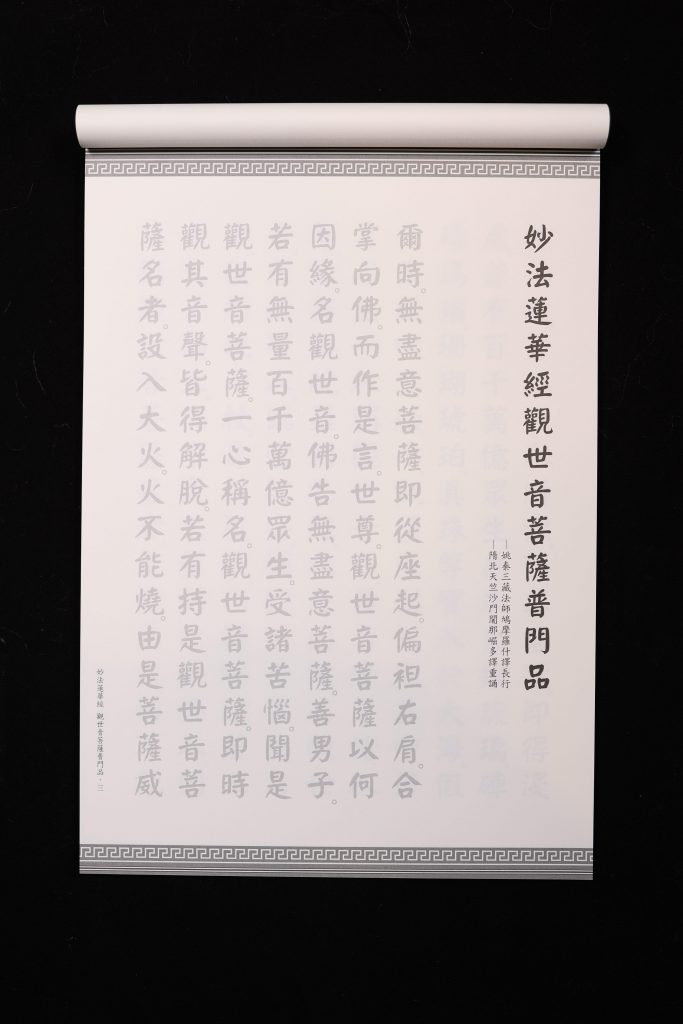 妙法蓮華經觀世音菩薩普門品
—姚秦三藏法師鳩摩羅什譯長行
—隋北天竺沙門闍那崛多譯重誦
爾時。無盡意菩薩即從座起。偏袒右肩。合
掌向佛。而作是言。世尊。觀世音菩薩以何
因緣。名觀世音。佛告無盡意菩薩。善男子。
若有無量百千萬億眾生。受諸苦惱。聞是
觀世音菩薩。一心稱名。觀世音菩薩。即時
觀其音聲。皆得解脫。若有持是觀世音菩
薩名者。設入大火。火不能燒。由是菩薩威
妙法蓮華經 觀世音菩薩普門品·三